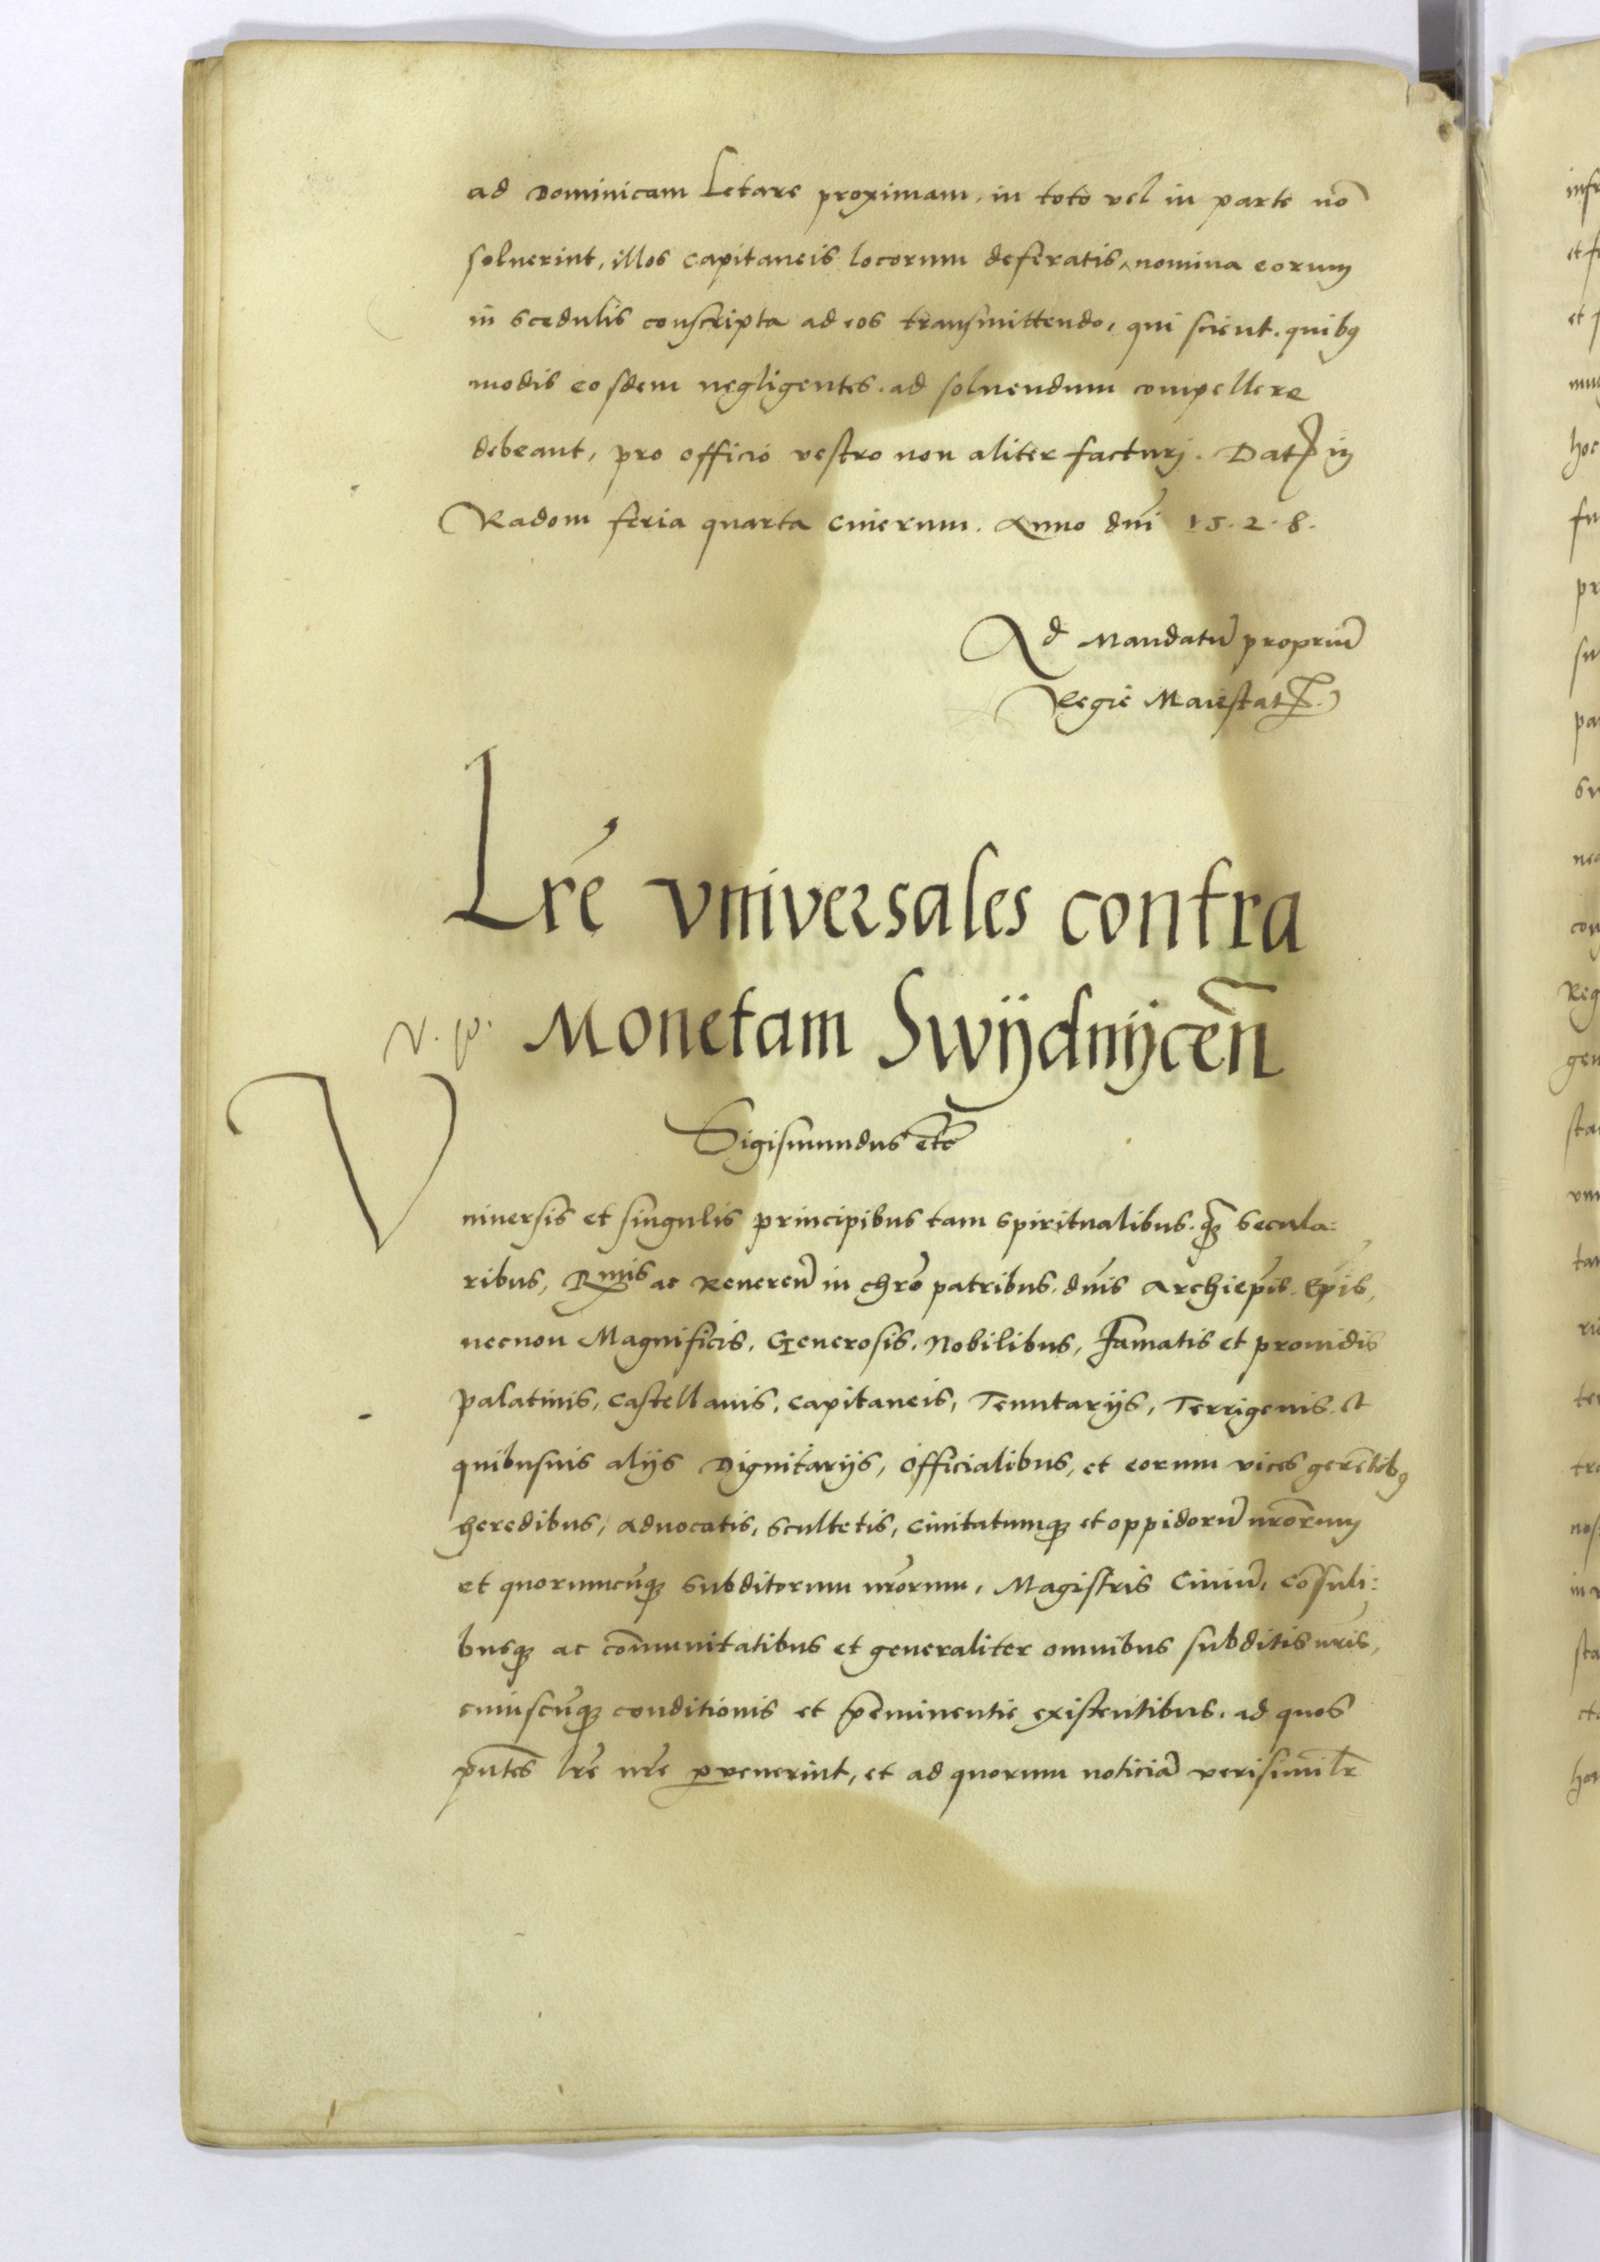 ad Dominicam Letare proximam, in toto vel in parte nō
soluerint, illos capitaneis locorum deferatis, nomina eorum
in scedulis conscripta ad eos transmittendo, qui scient. quibꝯ
modis eosdem negligentes. ad soluendum compellere
debeant, pro officio vestro non aliter facturj. Datꝭ in
Radom feria quarta Cinerum. Anno dnī 15.2.8.
Ad Mandatū propriū
Regie Maiestatꝭ.
Lrē vniversales contra
Monetam Swijdnijceñ
Sigismundus etc̄
Vniuersis et singulis principibus tam spiritualibus. qꝫ̄ secula:
ribus, Rmis ac Reuereñ in chrō patribus. dnīs Archiepīs. Epīs,
necnon Magnificis, Generosis, Nobilibus, Famatis et prouidis
palatinis, Castellanis, Capitaneis, Tenutarijs, Terrigenis. et
quibusuis alijs Dignitarijs, officialibus, et eorum vices gerētibꝯ
heredibus, aduocatis, scultetis, ciuitatumqꝫ et oppidorū nrōrum
et quorumcūqꝫ subditorum nrōrum, Magistris Ciuiū, Cōsuli:
busqꝫ ac cōmunitatibus et generaliter omnibus subditis nrīs,
cuiuscūqꝫ conditionis et p̄eminentie existentibus. ad quos
pn̄tes lrē nrē ꝑvenerint, et ad quorum noticiā verisimilr̄